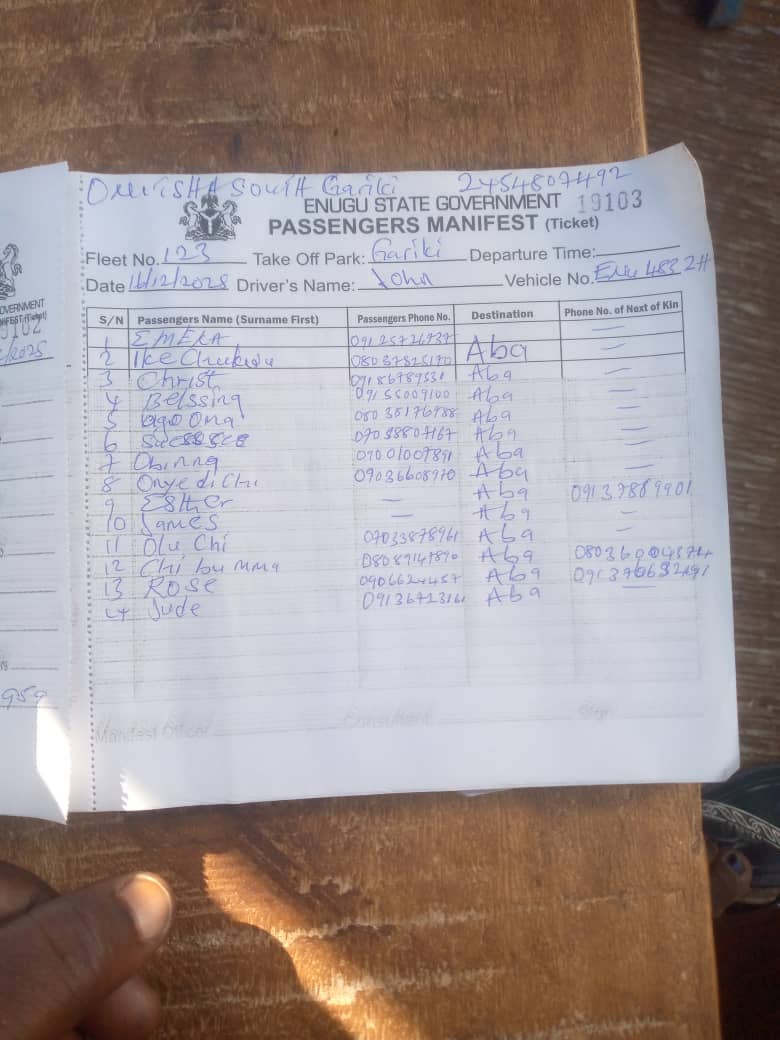 SOUTH Gariki 2454807492
ENUGU STATE GOVERNMENT 19103
PASSENGERS MANIFEST (Ticket)
Fleet No. 123 Take Off Park: Gariki Departure Time:
Date 16/12/2025 Driver's Name: John Vehicle No. Enu
S/N Passengers Name (Surname First) Passengers Phone No. Destination Phone No. of Next of Kin
1 EMEKA 09125726737 —
2 Ike Chukwu 08037525170 Aba —
3 Christ 09186789531 Aba —
4 Belssing 09155009100 Aba —
5 Ugo Oma 08035176788 Aba —
6 07058807167 Aba —
7 Obinna 07001007891 Aba —
8 Onyedi Chi 09036608970 Aba —
9 Esther — Aba 09137889901
10 James — Aba —
11 Olu Chi 07033878961 Aba —
12 Chi bu mma 08089147890 Aba
13 Rose 0906624457 Aba
14 Jude 0913672316 Aba —
Manifest Officer
OVERNMENT
/2025
959